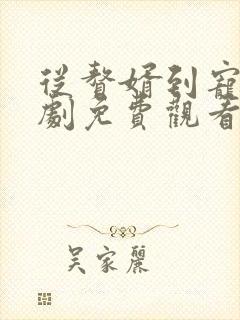 從贅婿到寵
劇免費觀看
吳家麗